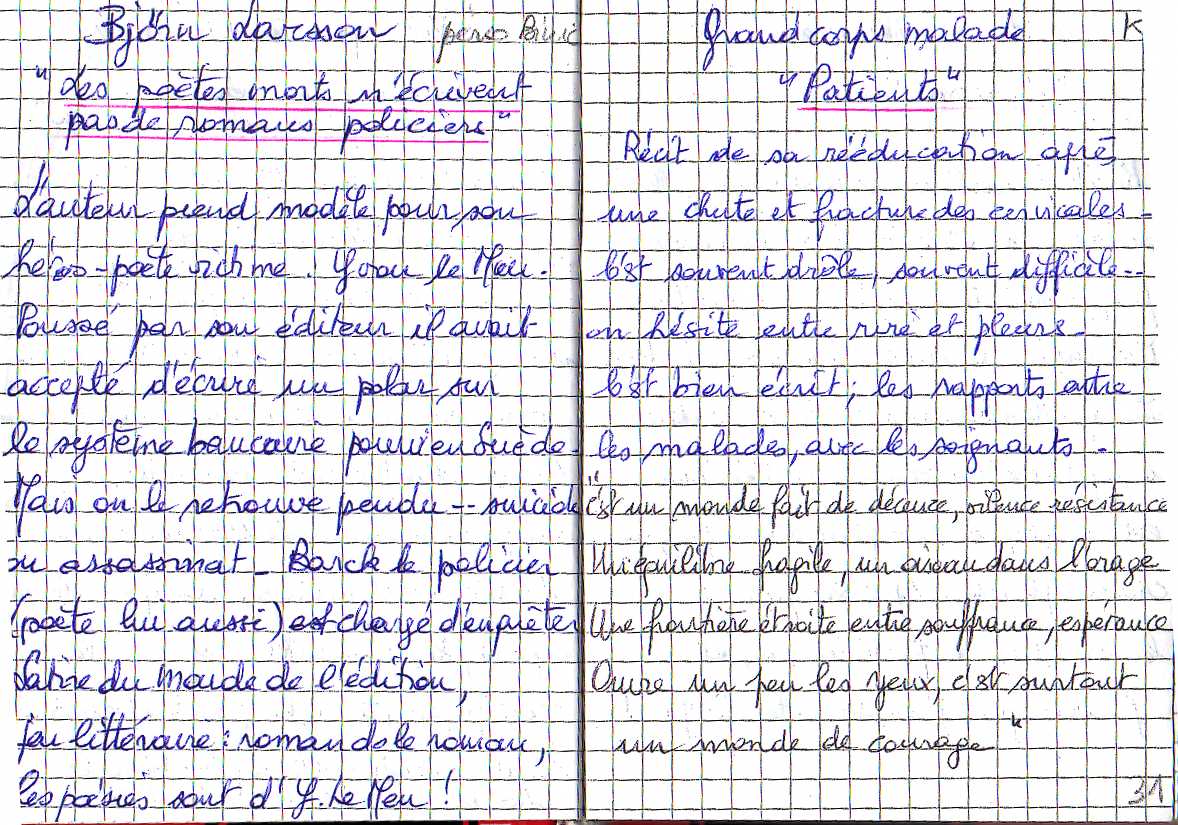 Björn Larsson perso
"Les poètes morts n'écrivent
pas de romans policiers"
L'auteur prend modèle pour son
héros-poète victime. Yvon le Men.
Poussé par son éditeur il avait
accepté d'écrire un polar sur
le système bancaire pourri en Suède.
Mais on le retrouve pendu -- suicide
ou assassinat - Barck le policier
(poète lui aussi) est chargé d'enquêter
Satire du monde de l'édition,
jeu littéraire : roman ds le roman,
les poésies sont d'Y. Le Men !
Grand corps malade K
"Patients"
Récit de sa rééducation après
une chute et fracture des cervicales -
C'est souvent drôle, souvent difficile --
on hésite entre rire et pleurs -
C'est bien écrit ; les rapports entre
les malades, avec les soignants -
"c'est un monde fait de décence, silence résistance
Un équilibre fragile, un oiseau dans l'orage
Une frontière étroite entre souffrance, espérance
Ouvre un peu les yeux, c'est surtout
un monde de courage"
31